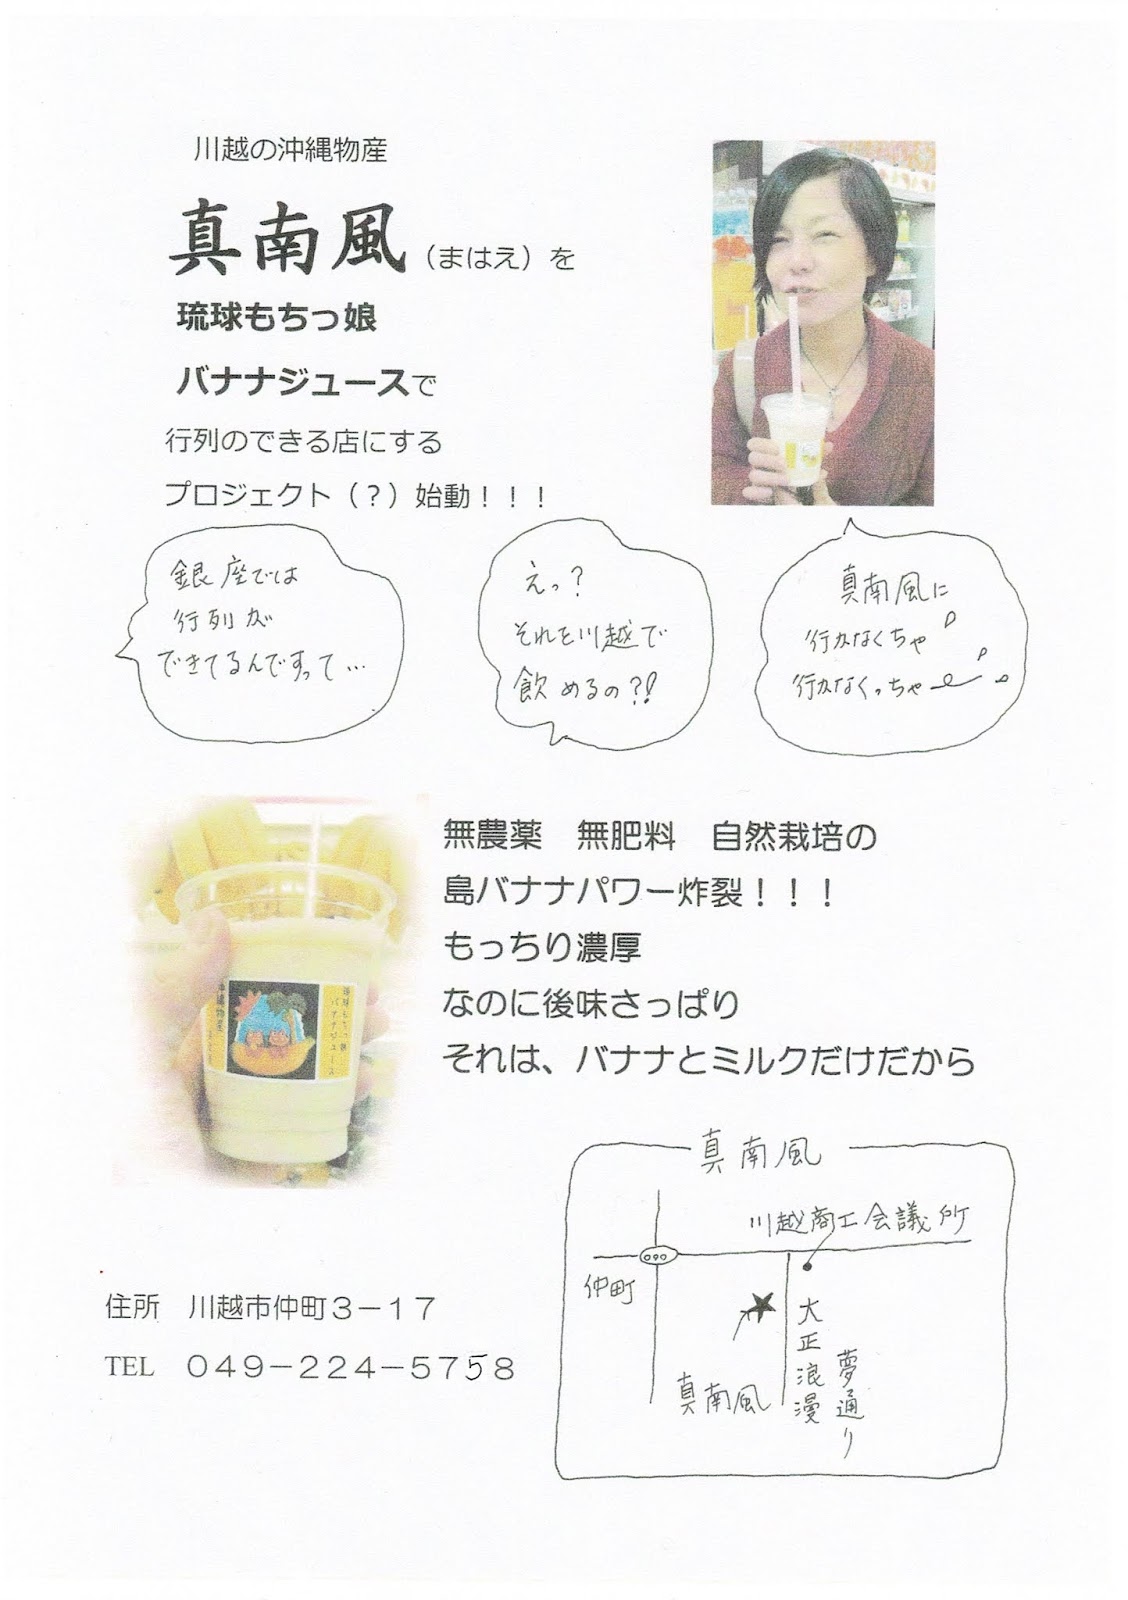 川越の沖縄物産
真南風（まはえ）を
琉球もちっ娘
バナナジュースで
行列のできる店にする
プロジェクト（？）始動！！！
銀座では
行列が
できてるんですって…
えっ？
それを川越で
飲めるの？！
真南風に
行かなくちゃ
行かなくっちゃ
無農薬　無肥料　自然栽培の
島バナナパワー炸裂！！！
もっちり濃厚
なのに後味さっぱり
それは、バナナとミルクだけだから
沖縄物産
バナナジュース
真南風
川越商工会議所
仲町
大正浪漫
夢通り
真南風
住所　川越市仲町３－１７
TEL　０４９－２２４－５７５８